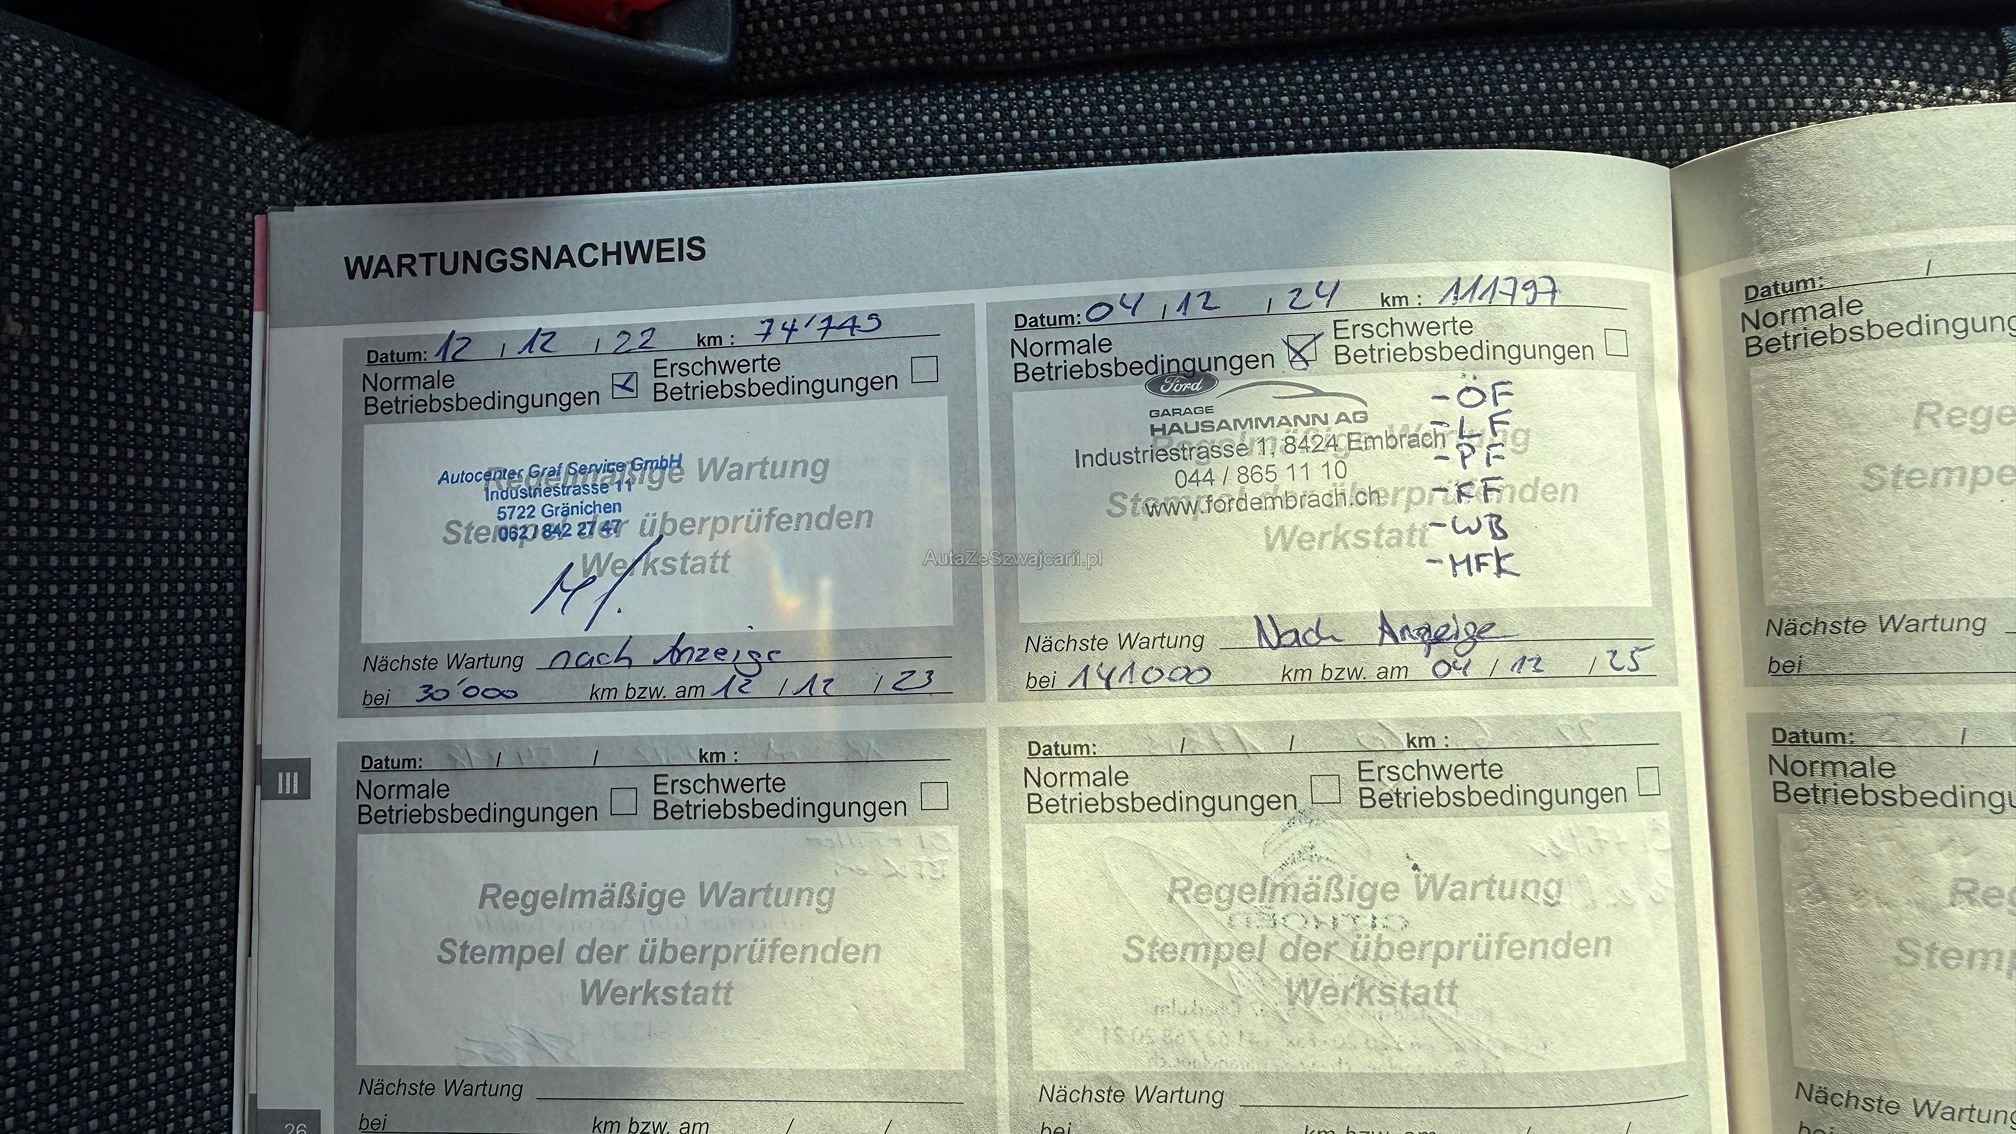 WARTUNGSNACHWEIS
Datum: 12 / 12 / 22 km : 74'749
Normale
Betriebsbedingungen
Erschwerte
Betriebsbedingungen
Autocenter Graf Service GmbH
Industriestrasse 11
5722 Gränichen
062 / 842 27 47
Regelmäßige Wartung
Stempel der überprüfenden
Werkstatt
Nächste Wartung nach Anzeige
bei 30'000 km bzw. am 12 / 12 / 23
Datum: 04 / 12 / 24 km : 111797
Normale
Betriebsbedingungen
Erschwerte
Betriebsbedingungen
Ford
GARAGE
HAUSAMMANN AG
Industriestrasse 1, 8424 Embrach
044 / 865 11 10
www.fordembrach.ch
Regelmäßige Wartung
Stempel der überprüfenden
Werkstatt
- ÖF
- LF
- PF
- KF
- WB
- MFK
Nächste Wartung Nach Anzeige
bei 141000 km bzw. am 04 / 12 / 25
AutaZeSzwajcarii.pl
Datum: / / km :
Normale
Betriebsbedingungen
Erschwerte
Betriebsbedingungen
Regelmäßige Wartung
Stempel der überprüfenden
Werkstatt
Nächste Wartung
bei km bzw. am / /
Datum: / / km :
Normale
Betriebsbedingungen
Erschwerte
Betriebsbedingungen
Regelmäßige Wartung
Stempel der überprüfenden
Werkstatt
Nächste Wartung
bei km bzw. am / /
III
26
Datum: /
Normale
Betriebsbedingung
Rege
Stempe
Nächste Wartung
bei
Datum: /
Normale
Betriebsbedingu
Re
Stem
Nächste Wartung
bei